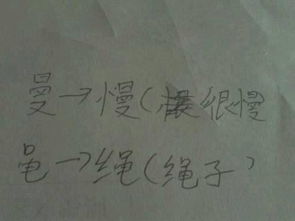 曼→慢(很慢
黾→绳(绳子)